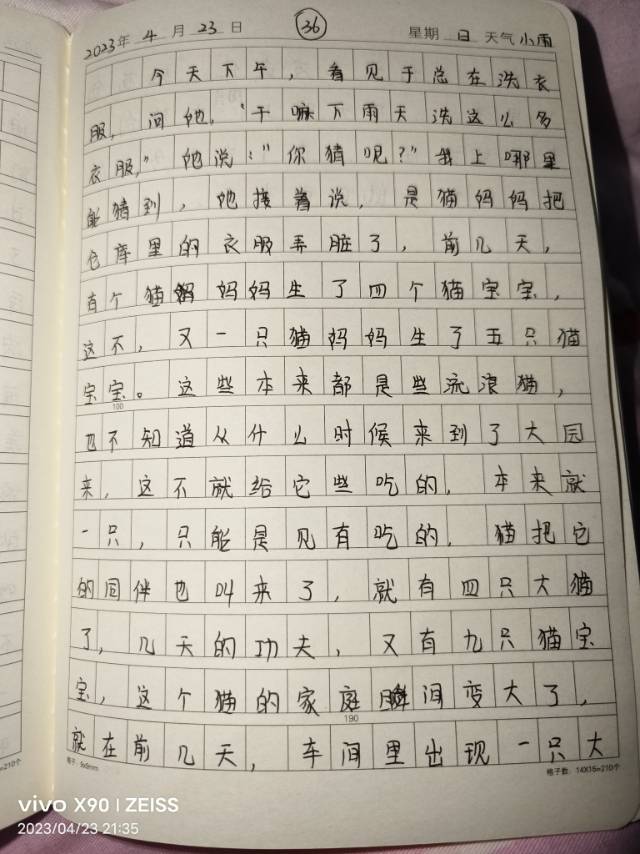 2023年 4 月 23 日 36 星期 日 天气 小雨
今天下午，看见于总在洗衣
服，问她，“干嘛下雨天洗这么多
衣服，”她说：“你猜呢？”我上哪里
能猜到，她接着说，是猫妈妈把
仓库里的衣服弄脏了，前几天，
有个猫妈妈生了四个猫宝宝，
这不，又一只猫妈妈生了五只猫
宝宝。这些本来都是些流浪猫，
100
也不知道从什么时候来到了大园
来，这不就给它些吃的，本来就
一只，只能是见有吃的，猫把它
的同伴也叫来了，就有四只大猫
了，几天的功夫，又有九只猫宝
宝，这个猫的家庭瞬间变大了，
190
就在前几天，车间里出现一只大
格子：9x9mm 格子数：14X15=210个
=210个
vivo X90 | ZEISS
2023/04/23 21:35